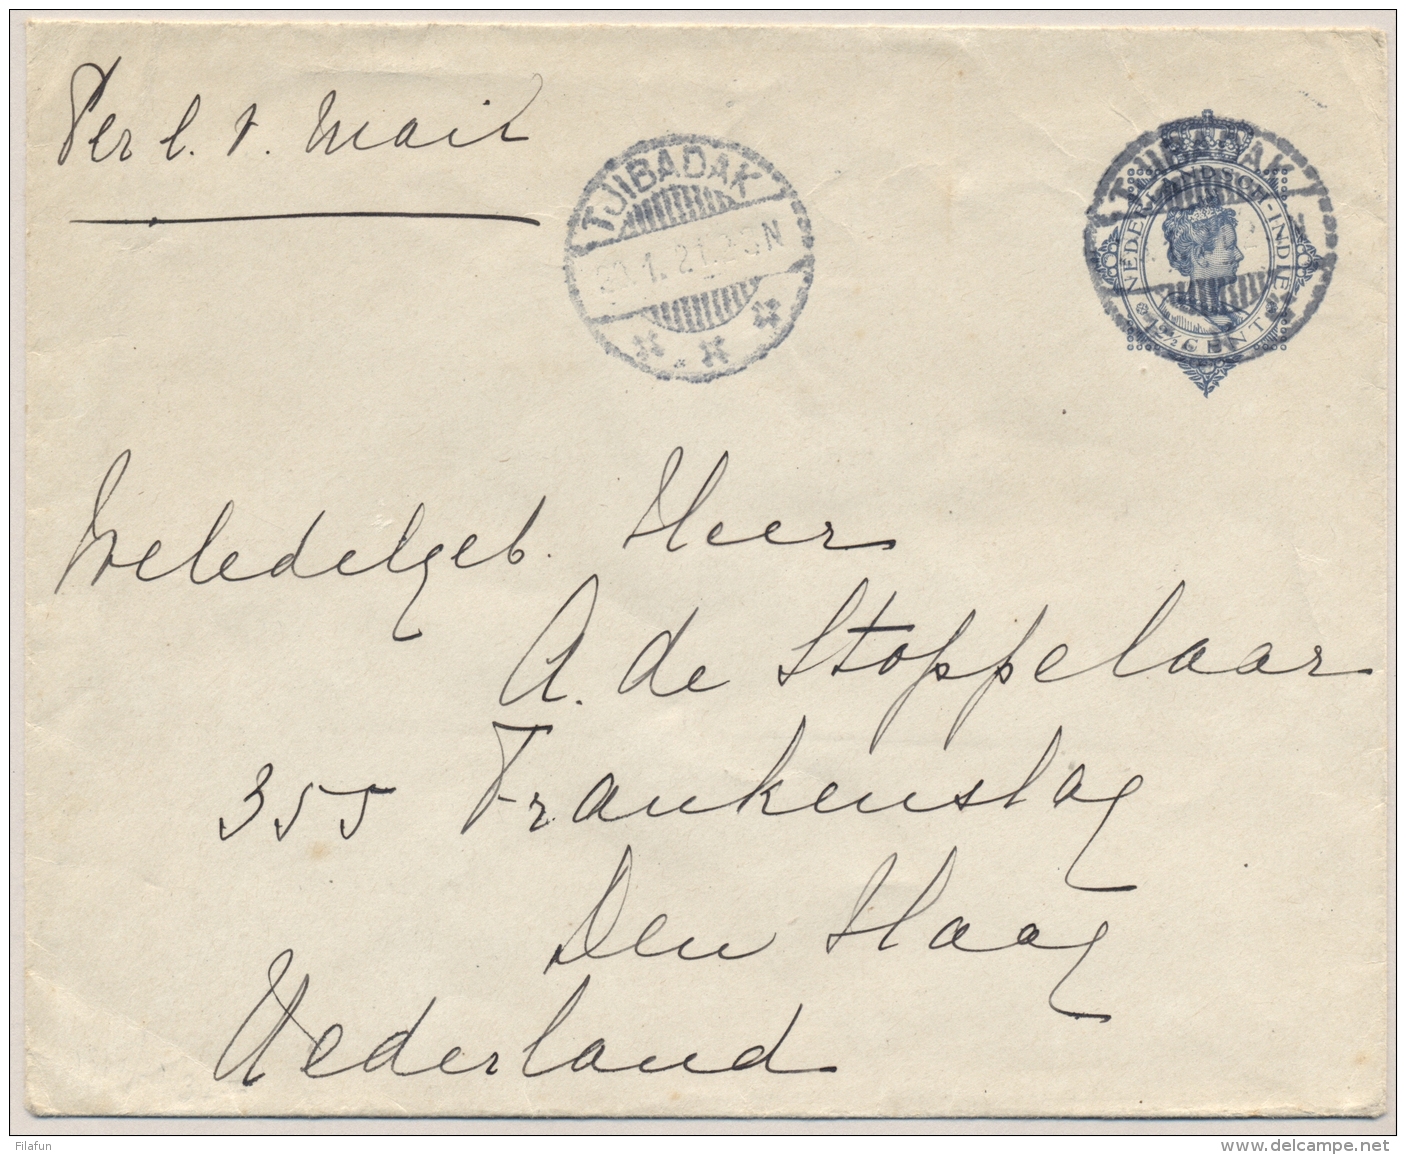 Per l. v. Mail
TJIBADAK
1. 21. 2-3N
TJIBADAK
NEDERLANDSCH-INDIË
12½ CENT
Weledelgeb. Heer
A. de Stoppelaar
355 Frankenslag
Den Haag
Nederland
Filafun
www.delcampe.net